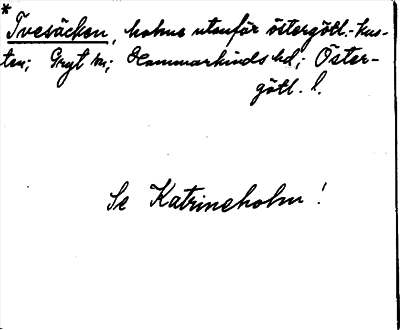 *
Tvesäcken, holme utanför östergötl.-kus-
ten; Gryt sn; Hammarkinds hd; Öster-
götl. l.
Se Katrineholm!